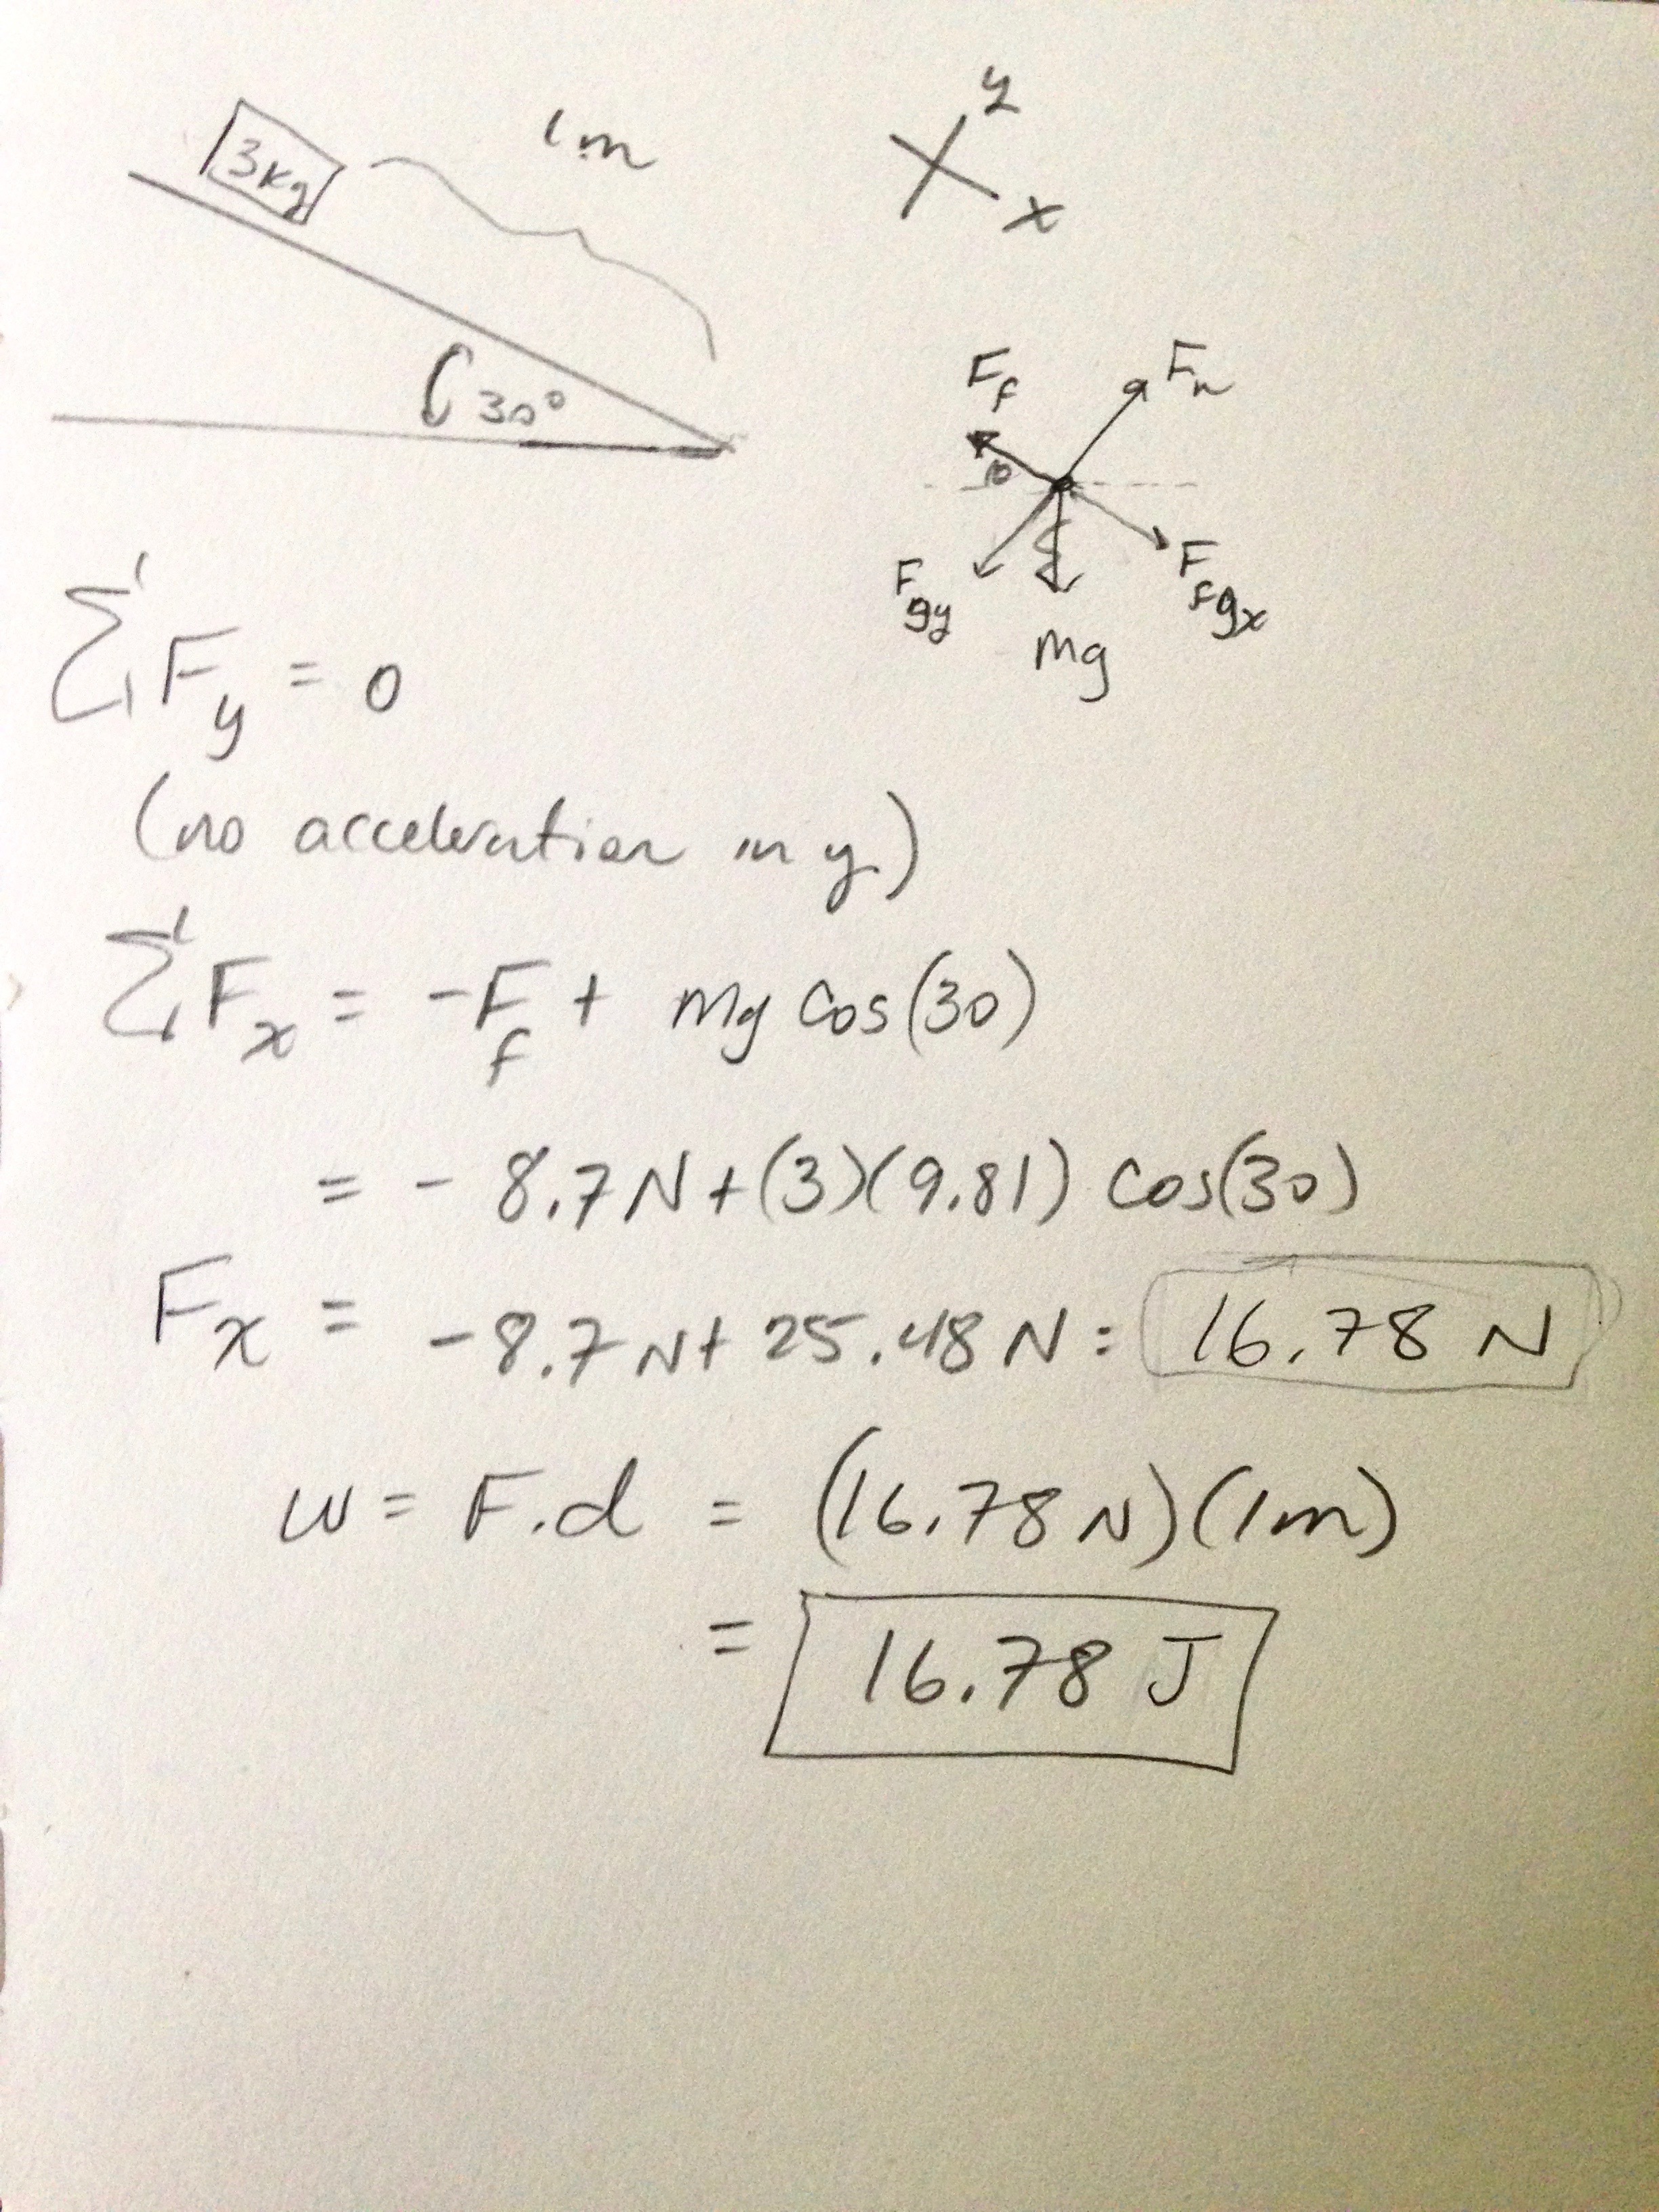 1m
y
x
3kg
30°
F_f
F_n
θ
F_gy
mg
F_fgx
∑F_y = 0
(no acceleration in y)
∑F_x = -F_f + mg cos(30)
= - 8.7N + (3)(9.81) cos(30)
F_x = -8.7N + 25.48N = 16.78 N
w = F.d = (16.78N)(1m)
= 16.78 J